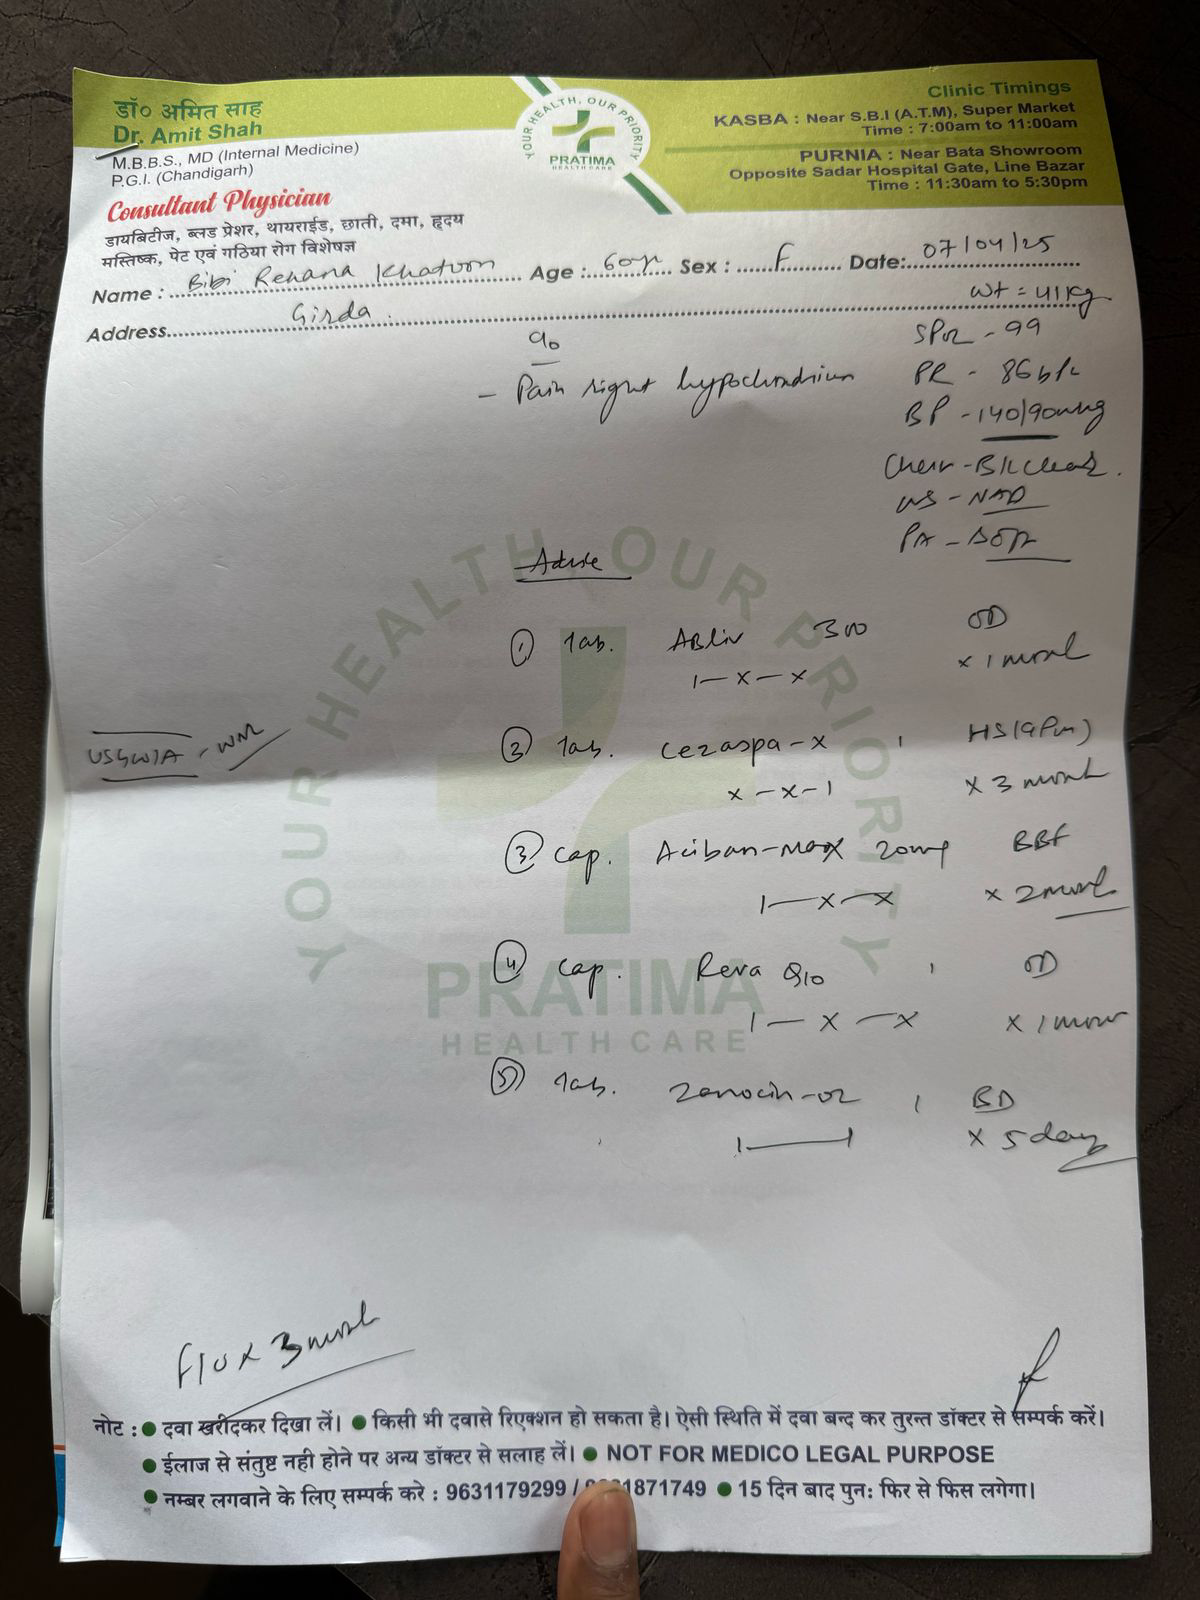 डॉ० अमित साह
Dr. Amit Shah
M.B.B.S., MD (Internal Medicine)
P.G.I. (Chandigarh)
Consultant Physician
डायबिटीज, ब्लड प्रेशर, थायराईड, छाती, दमा, हृदय
मस्तिष्क, पेट एवं गठिया रोग विशेषज्ञ
YOUR HEALTH, OUR PRIORITY
PRATIMA
HEALTH CARE
Clinic Timings
KASBA : Near S.B.I (A.T.M), Super Market
Time : 7:00am to 11:00am
PURNIA : Near Bata Showroom
Opposite Sadar Hospital Gate, Line Bazar
Time : 11:30am to 5:30pm
Name : Bibi Rehana Khatoon Age : 60yr Sex : F Date: 07/04/25
Address Girda
Wt = 41kg
SPO2 - 99
- Pain right hypochondrium
PR - 86b/
BP - 140/90mmhg
Chest - B/L clear.
- NAD
PA - Soft
Advise
① Tab. ABliv 300 OD
1 - x - x x 1 month
WNL
② Tab. Cezaspa-X 1 HS (9Pm)
x - x - 1 x 3 month
③ Cap. Aciban-Max 20mg BBF
1 - x - x x 2 month
④ Cap. Reva Q10 1 OD
1 - x - x x 1 month
⑤ Tab. Zenocin-OZ 1 BD
1 - 1 x 5 day
YOUR HEALTH OUR PRIORITY
PRATIMA
HEALTH CARE
F/U x 3 month
नोट : ● दवा खरीदकर दिखा लें। ● किसी भी दवासे रिएक्शन हो सकता है। ऐसी स्थिति में दवा बन्द कर तुरन्त डॉक्टर से सम्पर्क करें।
● ईलाज से संतुष्ट नही होने पर अन्य डॉक्टर से सलाह लें। ● NOT FOR MEDICO LEGAL PURPOSE
● नम्बर लगवाने के लिए सम्पर्क करे : 9631179299 / 1871749 ● 15 दिन बाद पुनः फिर से फिस लगेगा।